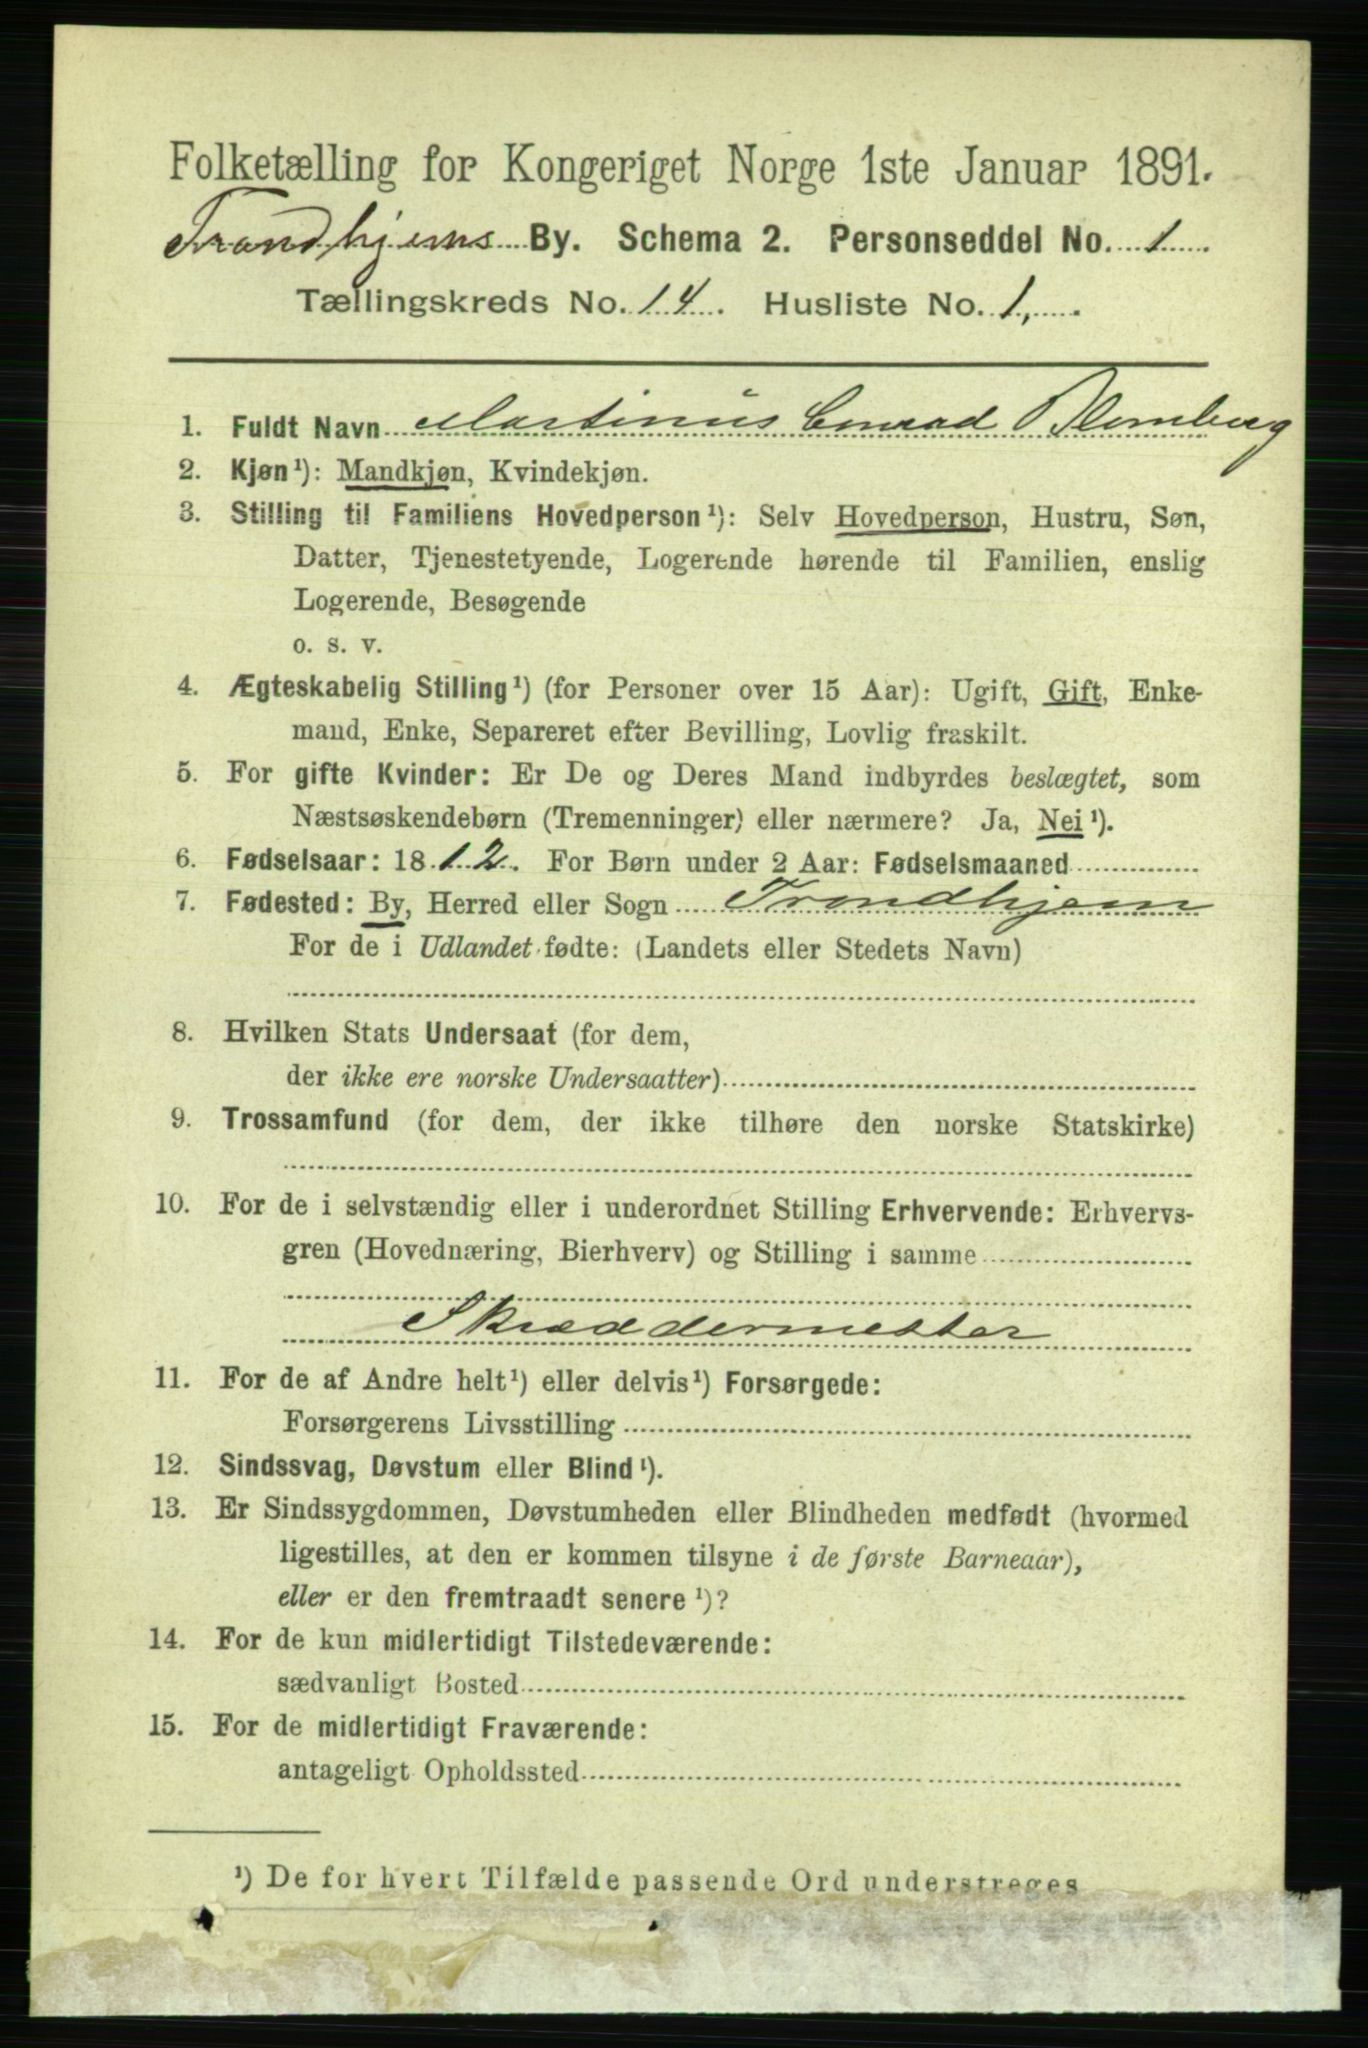 Folketælling for Kongeriget Norge 1ste Januar 1891.
Trondhjems By. Schema 2. Personseddel No. 1
Tællingskreds No. 14. Husliste No. 1,
1. Fuldt Navn Martinus Conrad Blomberg
2. Kjøn¹): Mandkjøn, Kvindekjøn.
3. Stilling til Familiens Hovedperson¹): Selv Hovedperson, Hustru, Søn,
Datter, Tjenestetyende, Logerende hørende til Familien, enslig
Logerende, Besøgende
o. s. v.
4. Ægteskabelig Stilling¹) (for Personer over 15 Aar): Ugift, Gift, Enke-
mand, Enke, Separeret efter Bevilling, Lovlig fraskilt.
5. For gifte Kvinder: Er De og Deres Mand indbyrdes beslægtet, som
Næstsøskendebørn (Tremenninger) eller nærmere? Ja, Nei¹).
6. Fødselsaar: 1812. For Børn under 2 Aar: Fødselsmaaned
7. Fødested: By, Herred eller Sogn Trondhjem
For de i Udlandet fødte: (Landets eller Stedets Navn)
8. Hvilken Stats Undersaat (for dem,
der ikke ere norske Undersaatter)
9. Trossamfund (for dem, der ikke tilhøre den norske Statskirke)
10. For de i selvstændig eller i underordnet Stilling Erhvervende: Erhvervs-
gren (Hovednæring, Bierhverv) og Stilling i samme
Skræddermester
11. For de af Andre helt¹) eller delvis¹) Forsørgede:
Forsørgerens Livsstilling
12. Sindssvag, Døvstum eller Blind¹).
13. Er Sindssygdommen, Døvstumheden eller Blindheden medfødt (hvormed
ligestilles, at den er kommen tilsyne i de første Barneaar),
eller er den fremtraadt senere¹)?
14. For de kun midlertidigt Tilstedeværende:
sædvanligt Bosted
15. For de midlertidigt Fraværende:
antageligt Opholdssted
¹) De for hvert Tilfælde passende Ord understreges